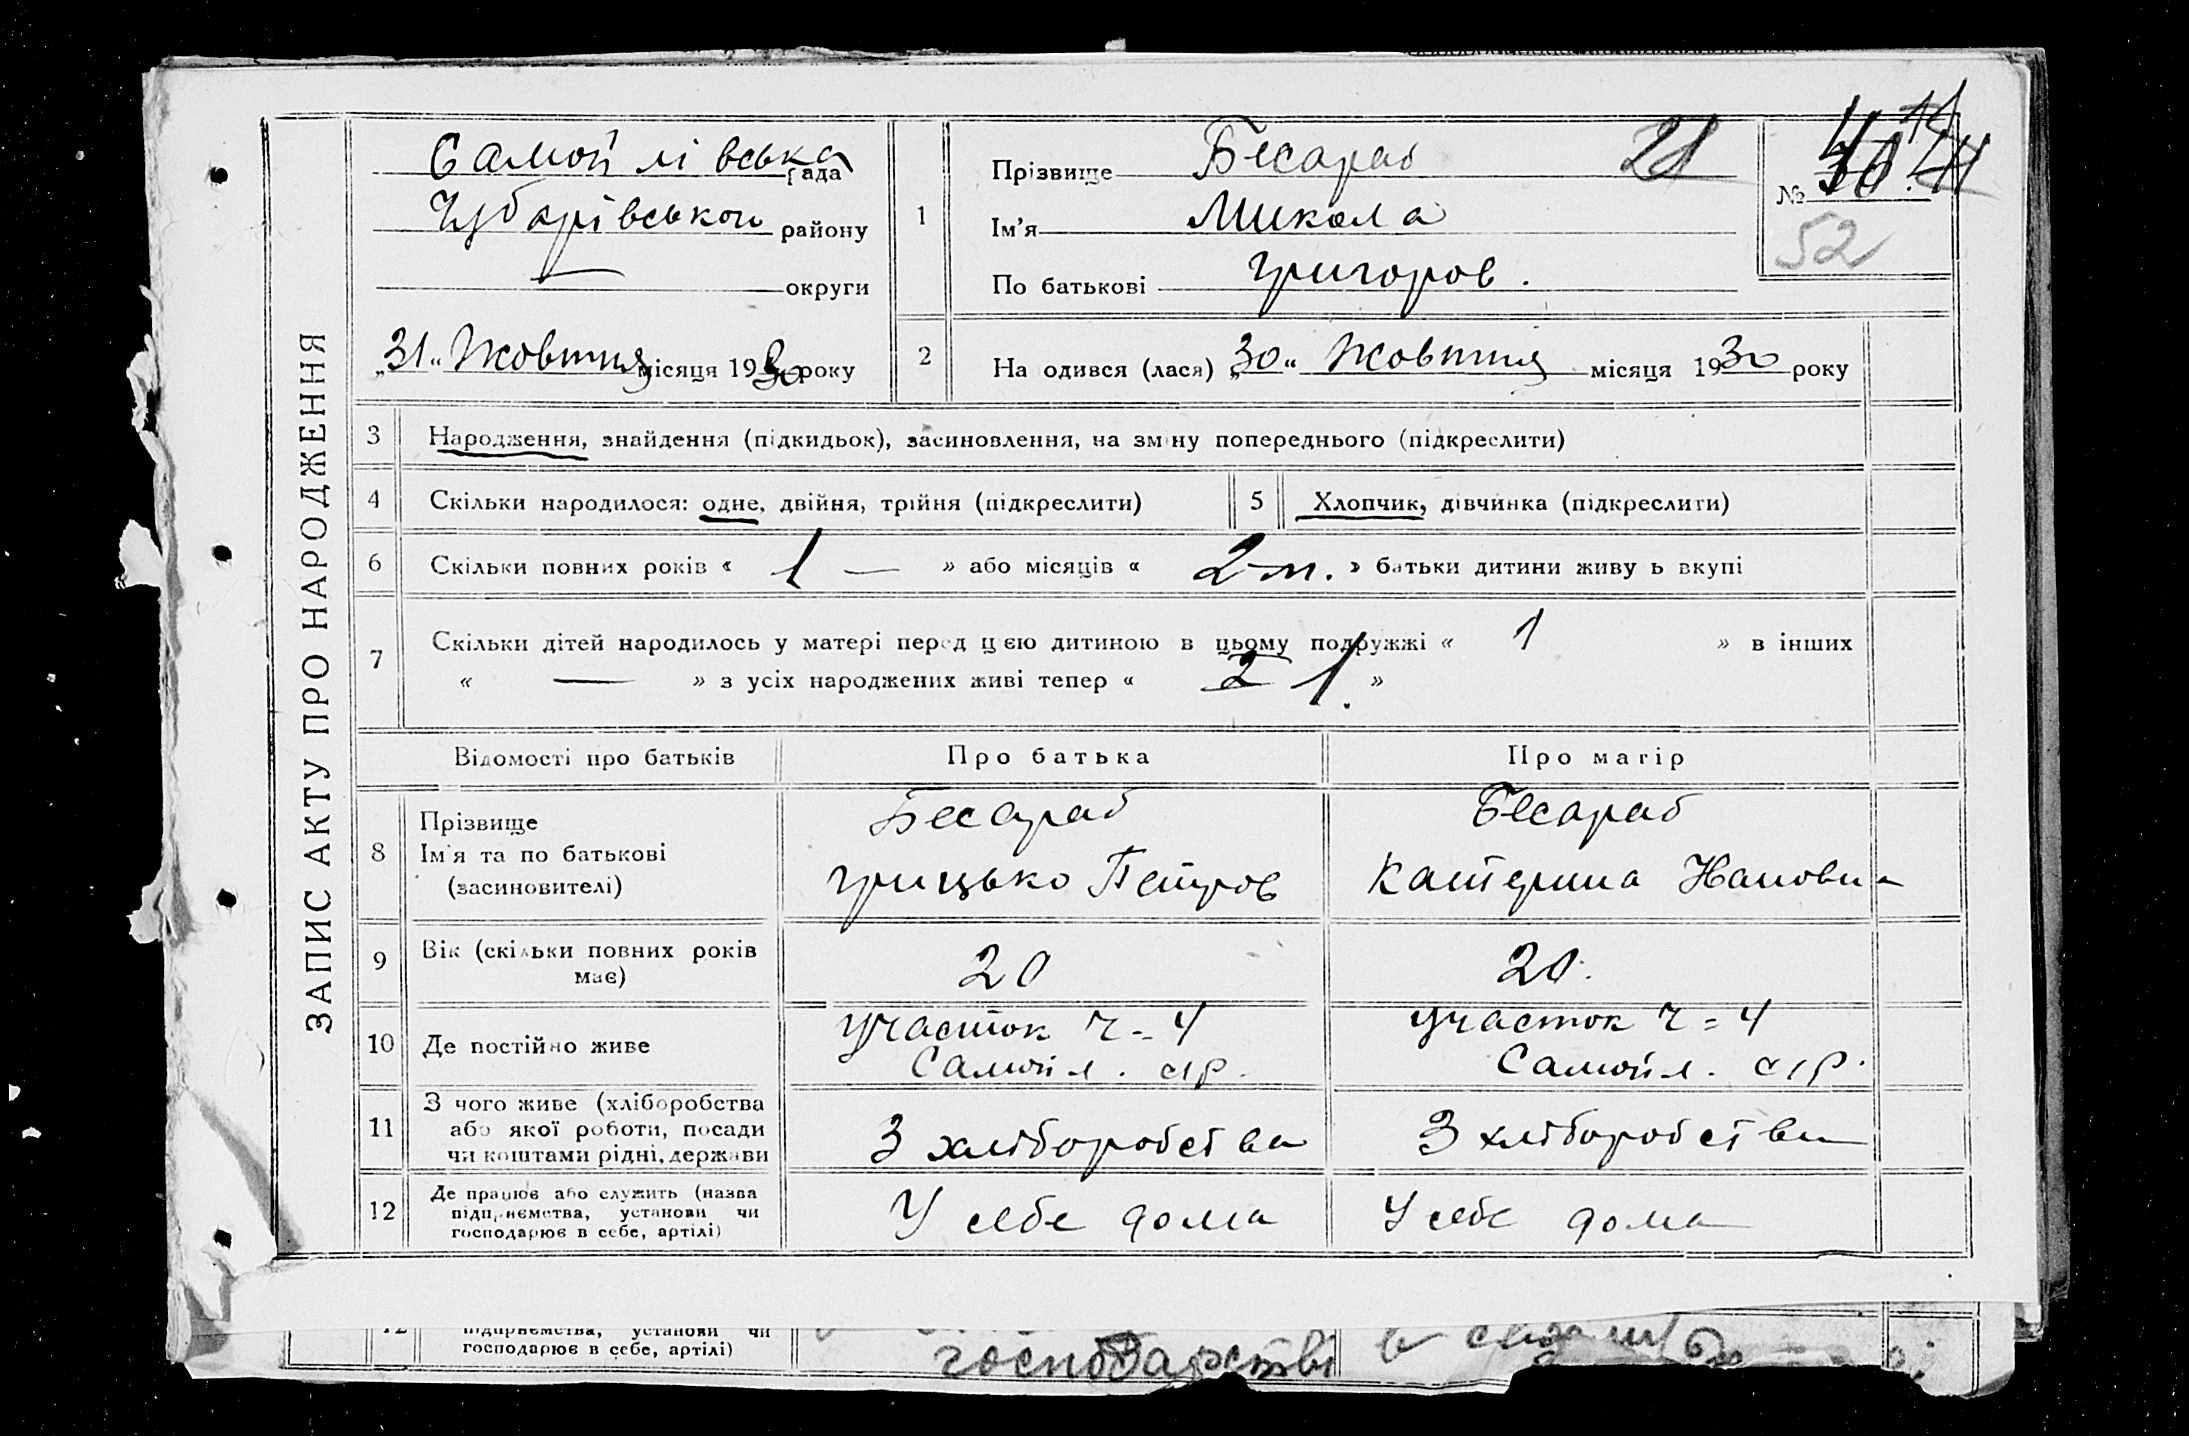 ЗАПИС АКТУ ПРО НАРОДЖЕННЯ
Самойлівська рада
Чубарівської району
— округи
„31“ Жовтня місяця 1930 року
1
Прізвище Бесараб 21
Ім'я Микола
По батькові Григоров.
№
52
2
На одився (лася) „30“ Жовтня місяця 1930 року
3 Народження, знайдення (підкидьок), засиновлення, на зміну попереднього (підкреслити)
4 Скільки народилося: одне, двійня, трійня (підкреслити)
5 Хлопчик, дівчинка (підкреслити)
6 Скільки повних років « 1 — » або місяців « 2 м. » батьки дитини живу ь вкупі
7 Скільки дітей народилось у матері перед цією дитиною в цьому подружжі « 1 » в інших
« — » з усіх народжених живі тепер « 2 1. »
Відомості про батьків Про батька Про матір
8 Прізвище
Ім'я та по батькові
(засиновителі)
Бесараб
Грицько Петров
Бесараб
Катерина
9 Вік (скільки повних років
має)
20
20.
10 Де постійно живе
участок ч = 4
Самойл. с/р.
участок ч = 4
Самойл. с/р.
11 З чого живе (хліборобства
або якої роботи, посади
чи коштами рідні, держави
З хліборобства
З хліборобства
12 Де працює або служить (назва
підприємства, установи чи
господарює в себе, артілі)
У себе дома
У себе дома
12 підприємства, установи чи
господарює в себе, артілі)
господарстві